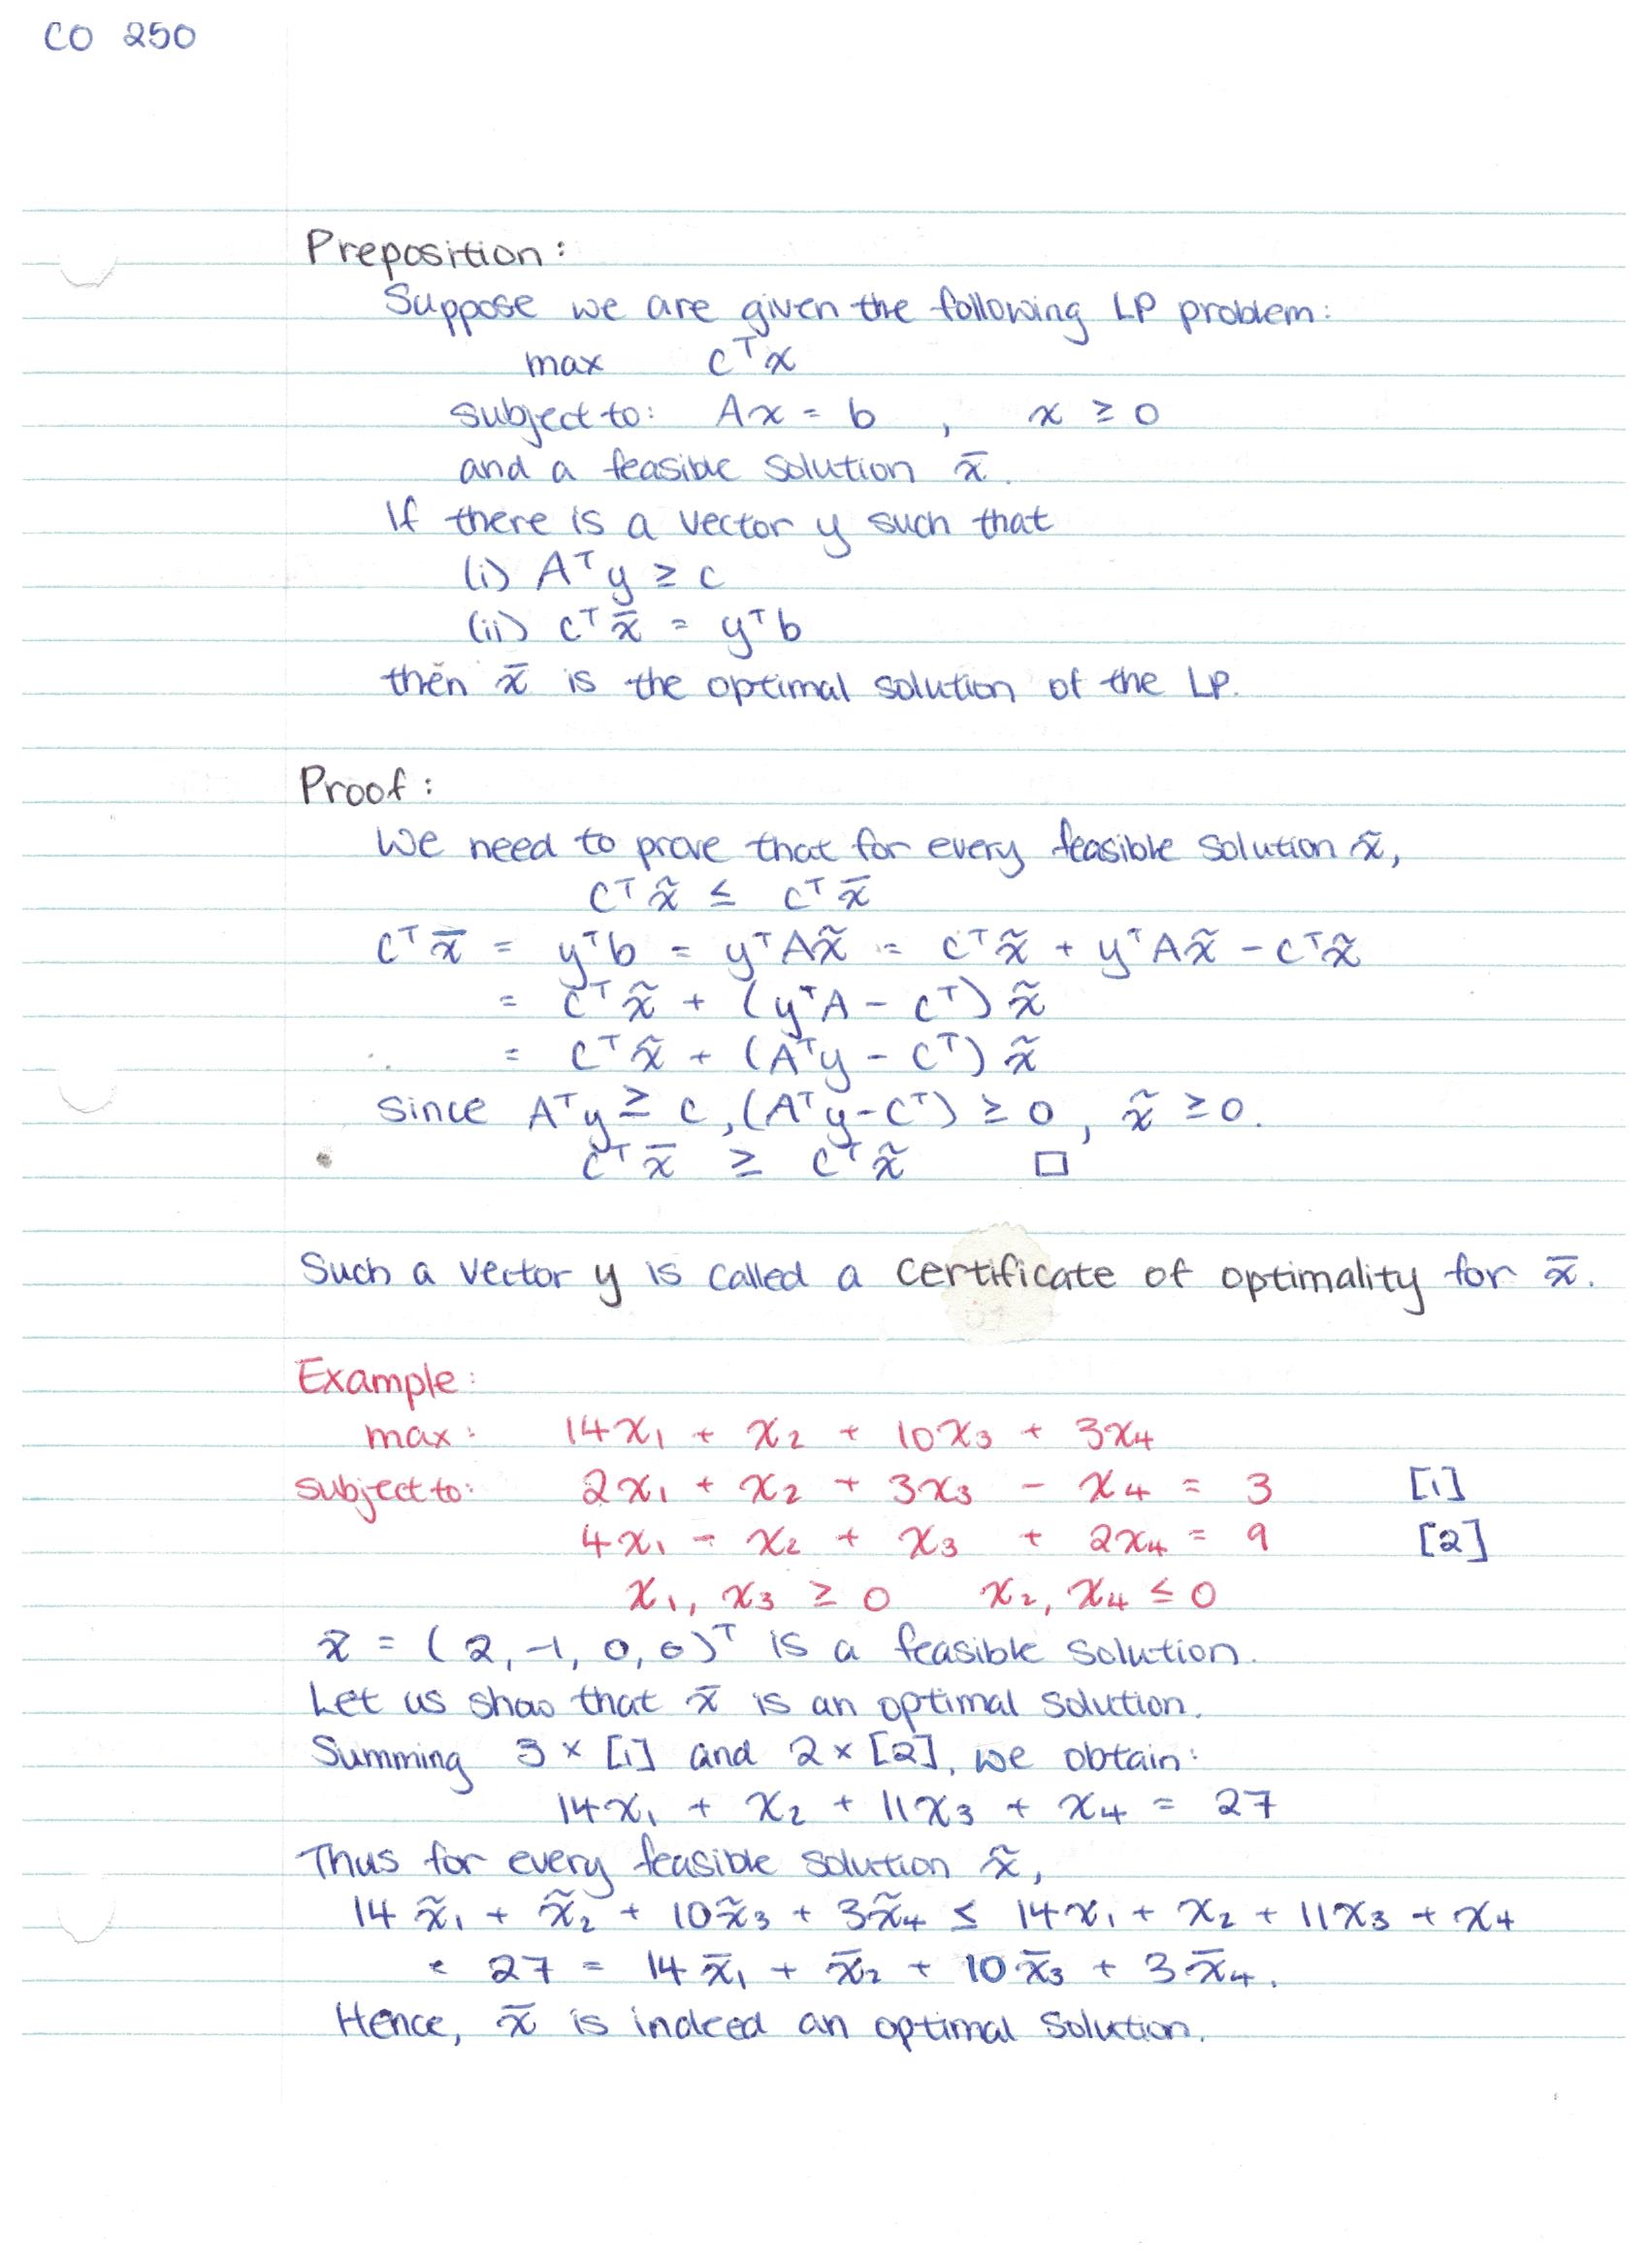 CO 250
Preposition:
Suppose we are given the following LP problem:
max cᵀx
subject to: Ax = b , x ≥ 0
and a feasible solution x̄.
If there is a vector y such that
(i) Aᵀy ≥ c
(ii) cᵀx̄ = yᵀb
then x̄ is the optimal solution of the LP.
Proof:
We need to prove that for every feasible solution x̃,
cᵀx̃ ≤ cᵀx̄
cᵀx̄ = yᵀb = yᵀAx̃ = cᵀx̃ + yᵀAx̃ - cᵀx̃
= cᵀx̃ + (yᵀA - cᵀ) x̃
= cᵀx̃ + (Aᵀy - cᵀ) x̃
Since Aᵀy ≥ c, (Aᵀy - cᵀ) ≥ 0, x̃ ≥ 0.
cᵀx̄ ≥ cᵀx̃ □
Such a vector y is called a certificate of optimality for x̄.
Example:
max: 14x₁ + x₂ + 10x₃ + 3x₄
subject to: 2x₁ + x₂ + 3x₃ - x₄ = 3 [1]
4x₁ - x₂ + x₃ + 2x₄ = 9 [2]
x₁, x₃ ≥ 0 x₂, x₄ ≤ 0
x̄ = (2, -1, 0, 0)ᵀ is a feasible solution.
Let us show that x̄ is an optimal solution.
Summing 3 × [1] and 2 × [2], we obtain:
14x₁ + x₂ + 11x₃ + x₄ = 27
Thus for every feasible solution x̃,
14x̃₁ + x̃₂ + 10x̃₃ + 3x̃₄ ≤ 14x₁ + x₂ + 11x₃ + x₄
= 27 = 14x̄₁ + x̄₂ + 10x̄₃ + 3x̄₄.
Hence, x̄ is indeed an optimal solution.